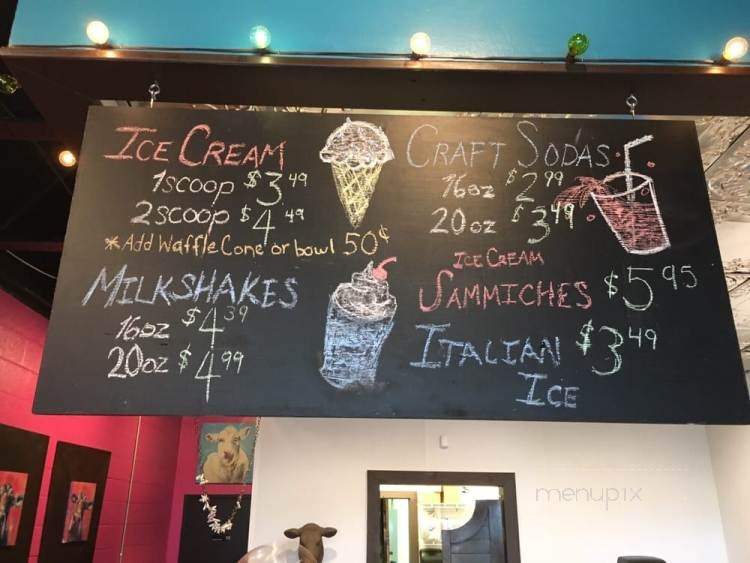 ICE CREAM
1 scoop $3.49
2 scoop $4.49
* Add Waffle Cone or bowl 50¢
MILKSHAKES
16oz $4.39
20oz $4.99
CRAFT SODAS
16oz $2.99
20oz $3.49
ICE CREAM
SAMMICHES $5.95
ITALIAN $3.49
ICE
menupix